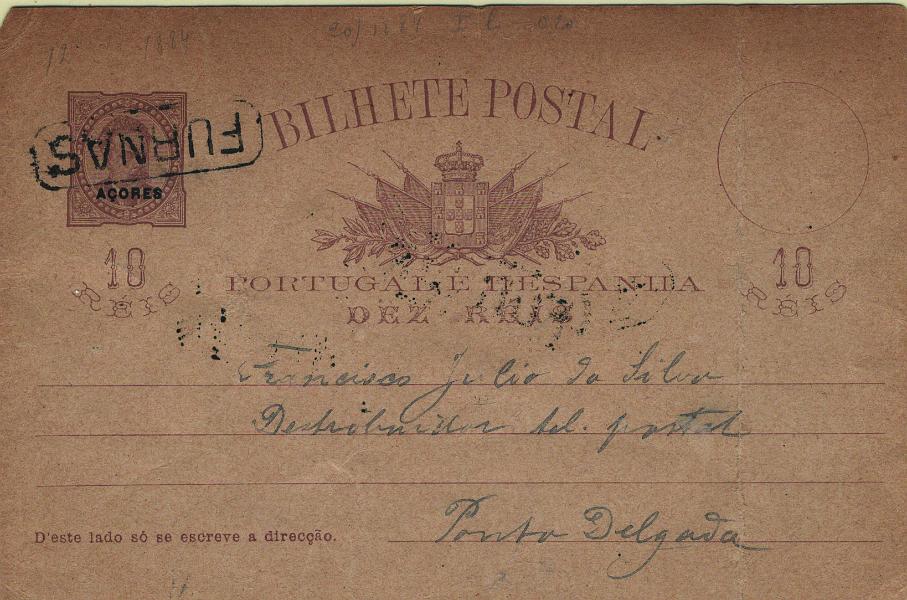 1884
1884
BILHETE POSTAL
FURNAS
AÇORES
10 RÉIS
10 RÉIS
PORTUGAL E HESPANHA
DEZ RÉIS
Francisco Julio da Silva
Destrobuidor tel. postal
Ponta Delgada
D'este lado só se escreve a direcção.